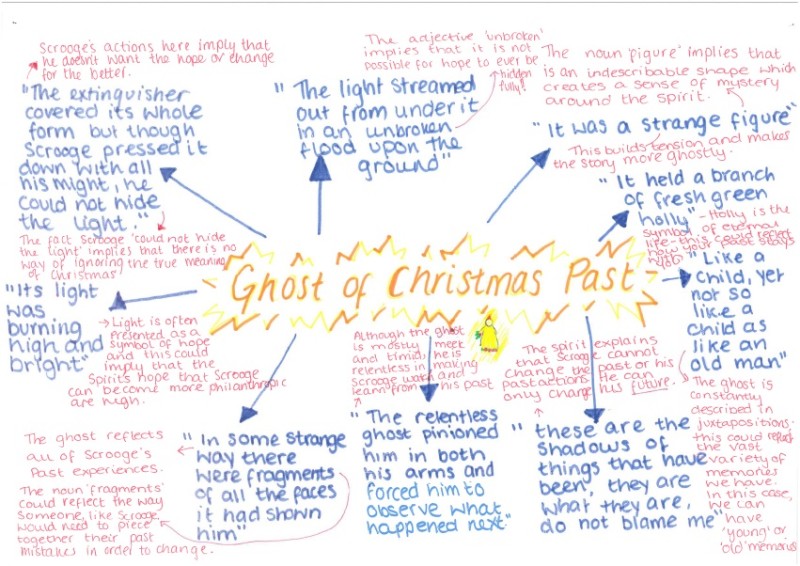 Scrooge's actions here imply that
he doesn't want the hope or change
for the better.
"The extinguisher
covered its whole
form but though
Scrooge pressed it
down with all
his might, he
could not hide
the light."
The fact Scrooge 'could not hide
the light' implies that there is no
way of ignoring the true meaning
of Christmas
The adjective 'unbroken'
implies that it is not
possible for hope to ever be
hidden
fully.
"The light streamed
out from under it
in an unbroken
flood upon the
ground"
The noun 'figure' implies that
is an indescribable shape which
creates a sense of mystery
around the spirit.
"It was a strange figure"
This builds tension and makes
the story more ghostly.
"It held a branch
of fresh green
holly"
- Holly is the
symbol of eternal
life - this could reflect
how your past stays
with you
Ghost of Christmas Past
"Its light
was
burning
high and
bright"
Light is often
presented as a
symbol of hope
and this could
imply that the
Spirit's hope that Scrooge
can become more philanthropic
are high.
"Like a
child, yet
not so
like a
child as
like an
old man"
The ghost is
constantly
described in
juxtapositions.
this could reflect
the vast
variety of
memories
we have.
In this case,
we can
have
'young' or
'old' memories
Although the ghost
is mostly meek
and timid, he is
relentless in making
Scrooge watch and
learn from his past
"The relentless
ghost pinioned
him in both
his arms and
forced him to
observe what
happened next."
The spirit explains
that Scrooge cannot
change the past or his
past actions. He can
only change his future.
"these are the
shadows of
things that have
been, they are
what they are,
do not blame me"
The ghost reflects
all of Scrooge's
Past experiences.
"In some strange
way there
were fragments
of all the faces
it had shown
him"
The noun 'fragments'
could reflect the way
someone, like Scrooge,
would need to piece
together their past
mistakes in order to change.